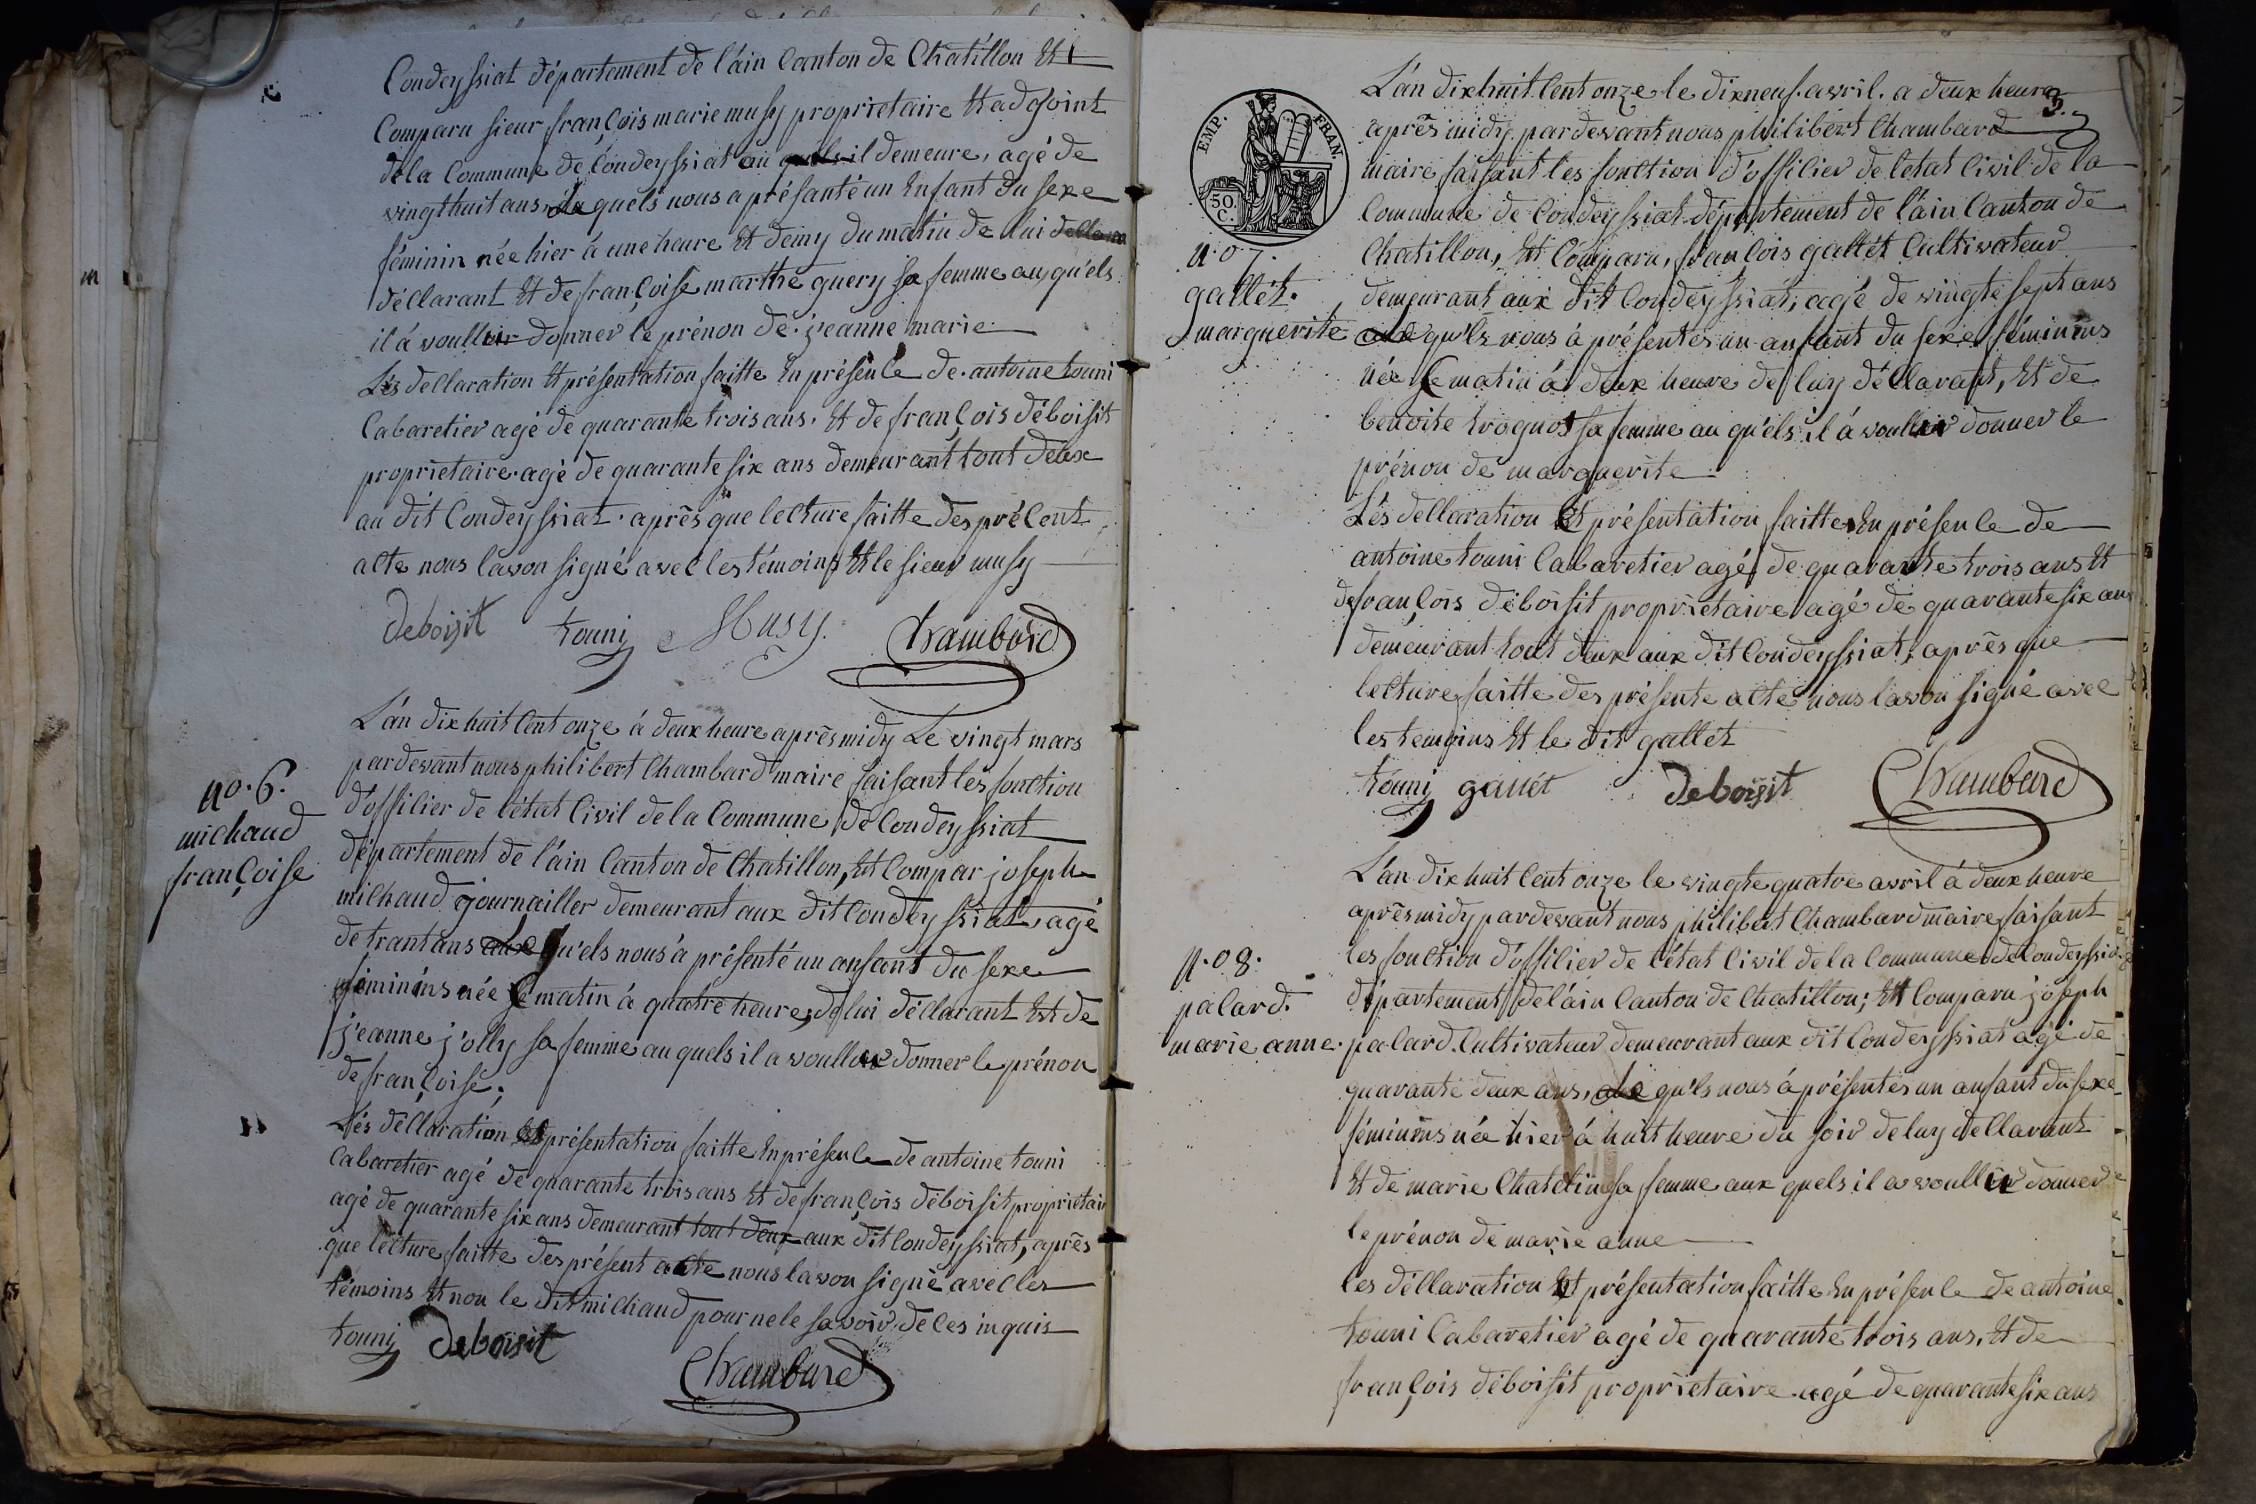 Condeyssiat département de l'áin Canton de Chatillon Et
Comparu sieur françois marie musy proprietaire Et adjoint
de la Commune de Condeyssiat au il demeure, agé de
vingt huit ans, quels nous a présanté un Enfant du sexe
féminin née hier à une heure Et demy du matin de lui
déclarant Et de françoise marthe guery sa femme auxqu'els
il á voulluir donner le prénon de jeanne marie
Lés dellaration Et présentation faitte En présence de antoine touni
Cabaretier agé de quarante trois ans, Et de françois déboisit
proprietaire agé de quarante six ans demeurant tout deux
au dit Condeyssiat. aprés que lecture faitte des précent
acte nous lavon signé avec les témoins Et le sieur musy
deboisit touni Musy. Chambard
L'án dix huit Cent onze á deux heure aprés midy Le vingt mars
pardevant nous philibert Chambard maire faisant lés fonction
d'offilier de l'état Civil de la Commune de Condeyssiat
département de l'áin Canton de Chatillon, Et Compar joseph
no. 6.
michaud
françoise
michaud journailler demeurant aux dit Condeyssiat, agé
de trant ans qu'els nous á présenté un anfant du sexe
féminins née ce matin á quatre heure, de lui déclarant Et de
jeanne j'olly sa femme au quels il a voulluir donner le prénon
de françoise.
Lés déllaration Et présentation faitte En présence de antoine touni
Cabaretier agé de quarante trois ans Et de françois déboisit proprietair
agé de quarante six ans demeurant tout deux aux dit Condeyssiat, aprés
que lecture faitte des présent acte nous lavon signé avec les
témoins Et non le dit michaud pour ne le savoir de ces inquis
touni deboisit
Chambard
3.
L'án dix huit Cent onze le dix neuf avril a deux heure
aprés midy pardevant nous philibert Chambard
maire faisant les fonction d'offilier de letat Civil de la
Commune de Condeyssiat département de l'áin Canton de
Chatillon, Et Comparu, françois gallét Cultivateur
demeurant aux dit Condeyssiat, agé de vingte sept ans
EMP. FRAN.
50.
C.
n.o 7.
gallét.
marguerite
qu'els nous á présentés un anfant du sexe féminins
née ce matin á deux heure de luy déclarant, Et de
benoite trognot sa femme au qu'éls il á voulluir donner le
prénon de marguerite
Lés dellaration Et présentation faitte En présence de
antoine touni Cabaretier agé de quarante trois ans Et
de françois déboisit proprietaire agé de quarante six ans
demeurant tout deux aux dit Condeyssiat, aprés que
lecture faitte des présente acte nous lavon signé avec
les temoins Et le dit gallét
touni gallét deboisit Chambard
L'án dix huit Cent onze le vingte quatre avril á deux heure
aprés midy pardevant nous philibert Chambard maire faisant
les fonction d'offilier de l'état Civil de la Commune de Condeyssia
département de l'áin Canton de Chatillon; Et Comparu joseph
n.o 8.
palard.
marie anne.
palard Cultivateur demeurant aux dit Condeyssiat agé de
quarante deux ans, qu'els nous á présentés un anfant du sexe
féminins née hier á huit heure du soir de luy dellarant
Et de marie Chatelin sa femme aux quels il a voulluir donner
le prénon de marie anne
les déllaration Et présentation faitte En présence de antoine
touni Cabaretier agé de quarante trois ans, Et de
françois déboisit proprietaire agé de quarante six ans